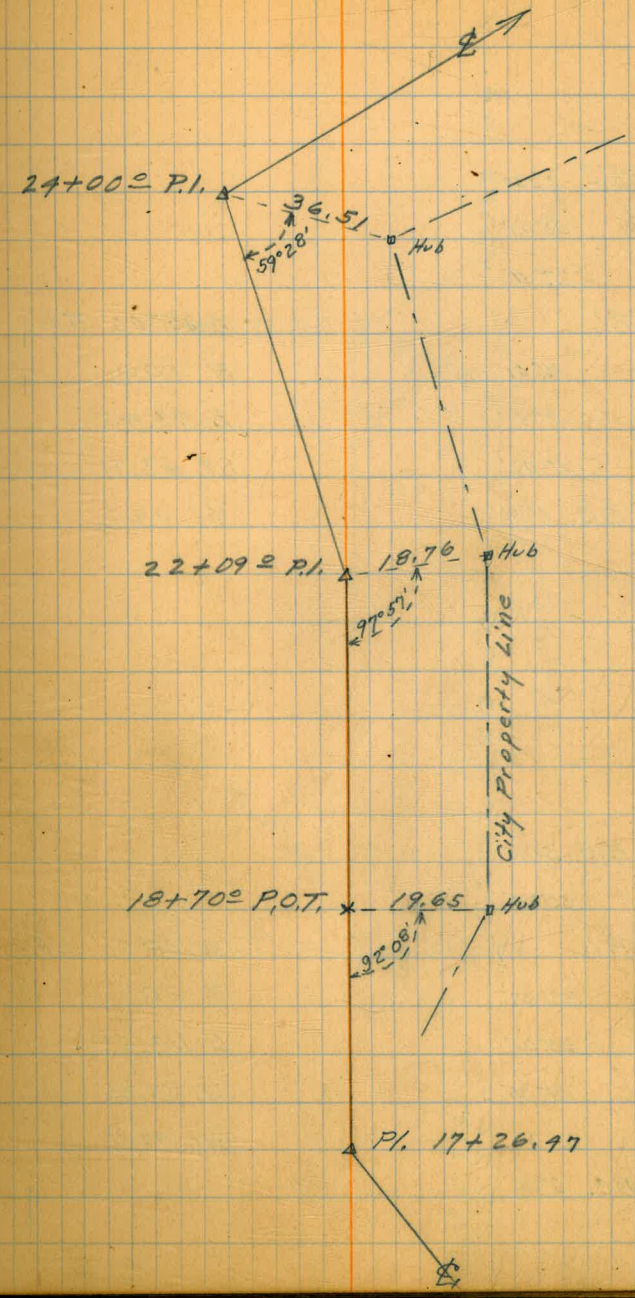 ℄
24+00⁰ P.I.
36.51
59°28'
Hub
22+09⁰ P.I.
18.76
Hub
97°57'
City Property Line
18+70⁰ P.O.T.
19.65
Hub
92°08'
P.I. 17+26.47
℄